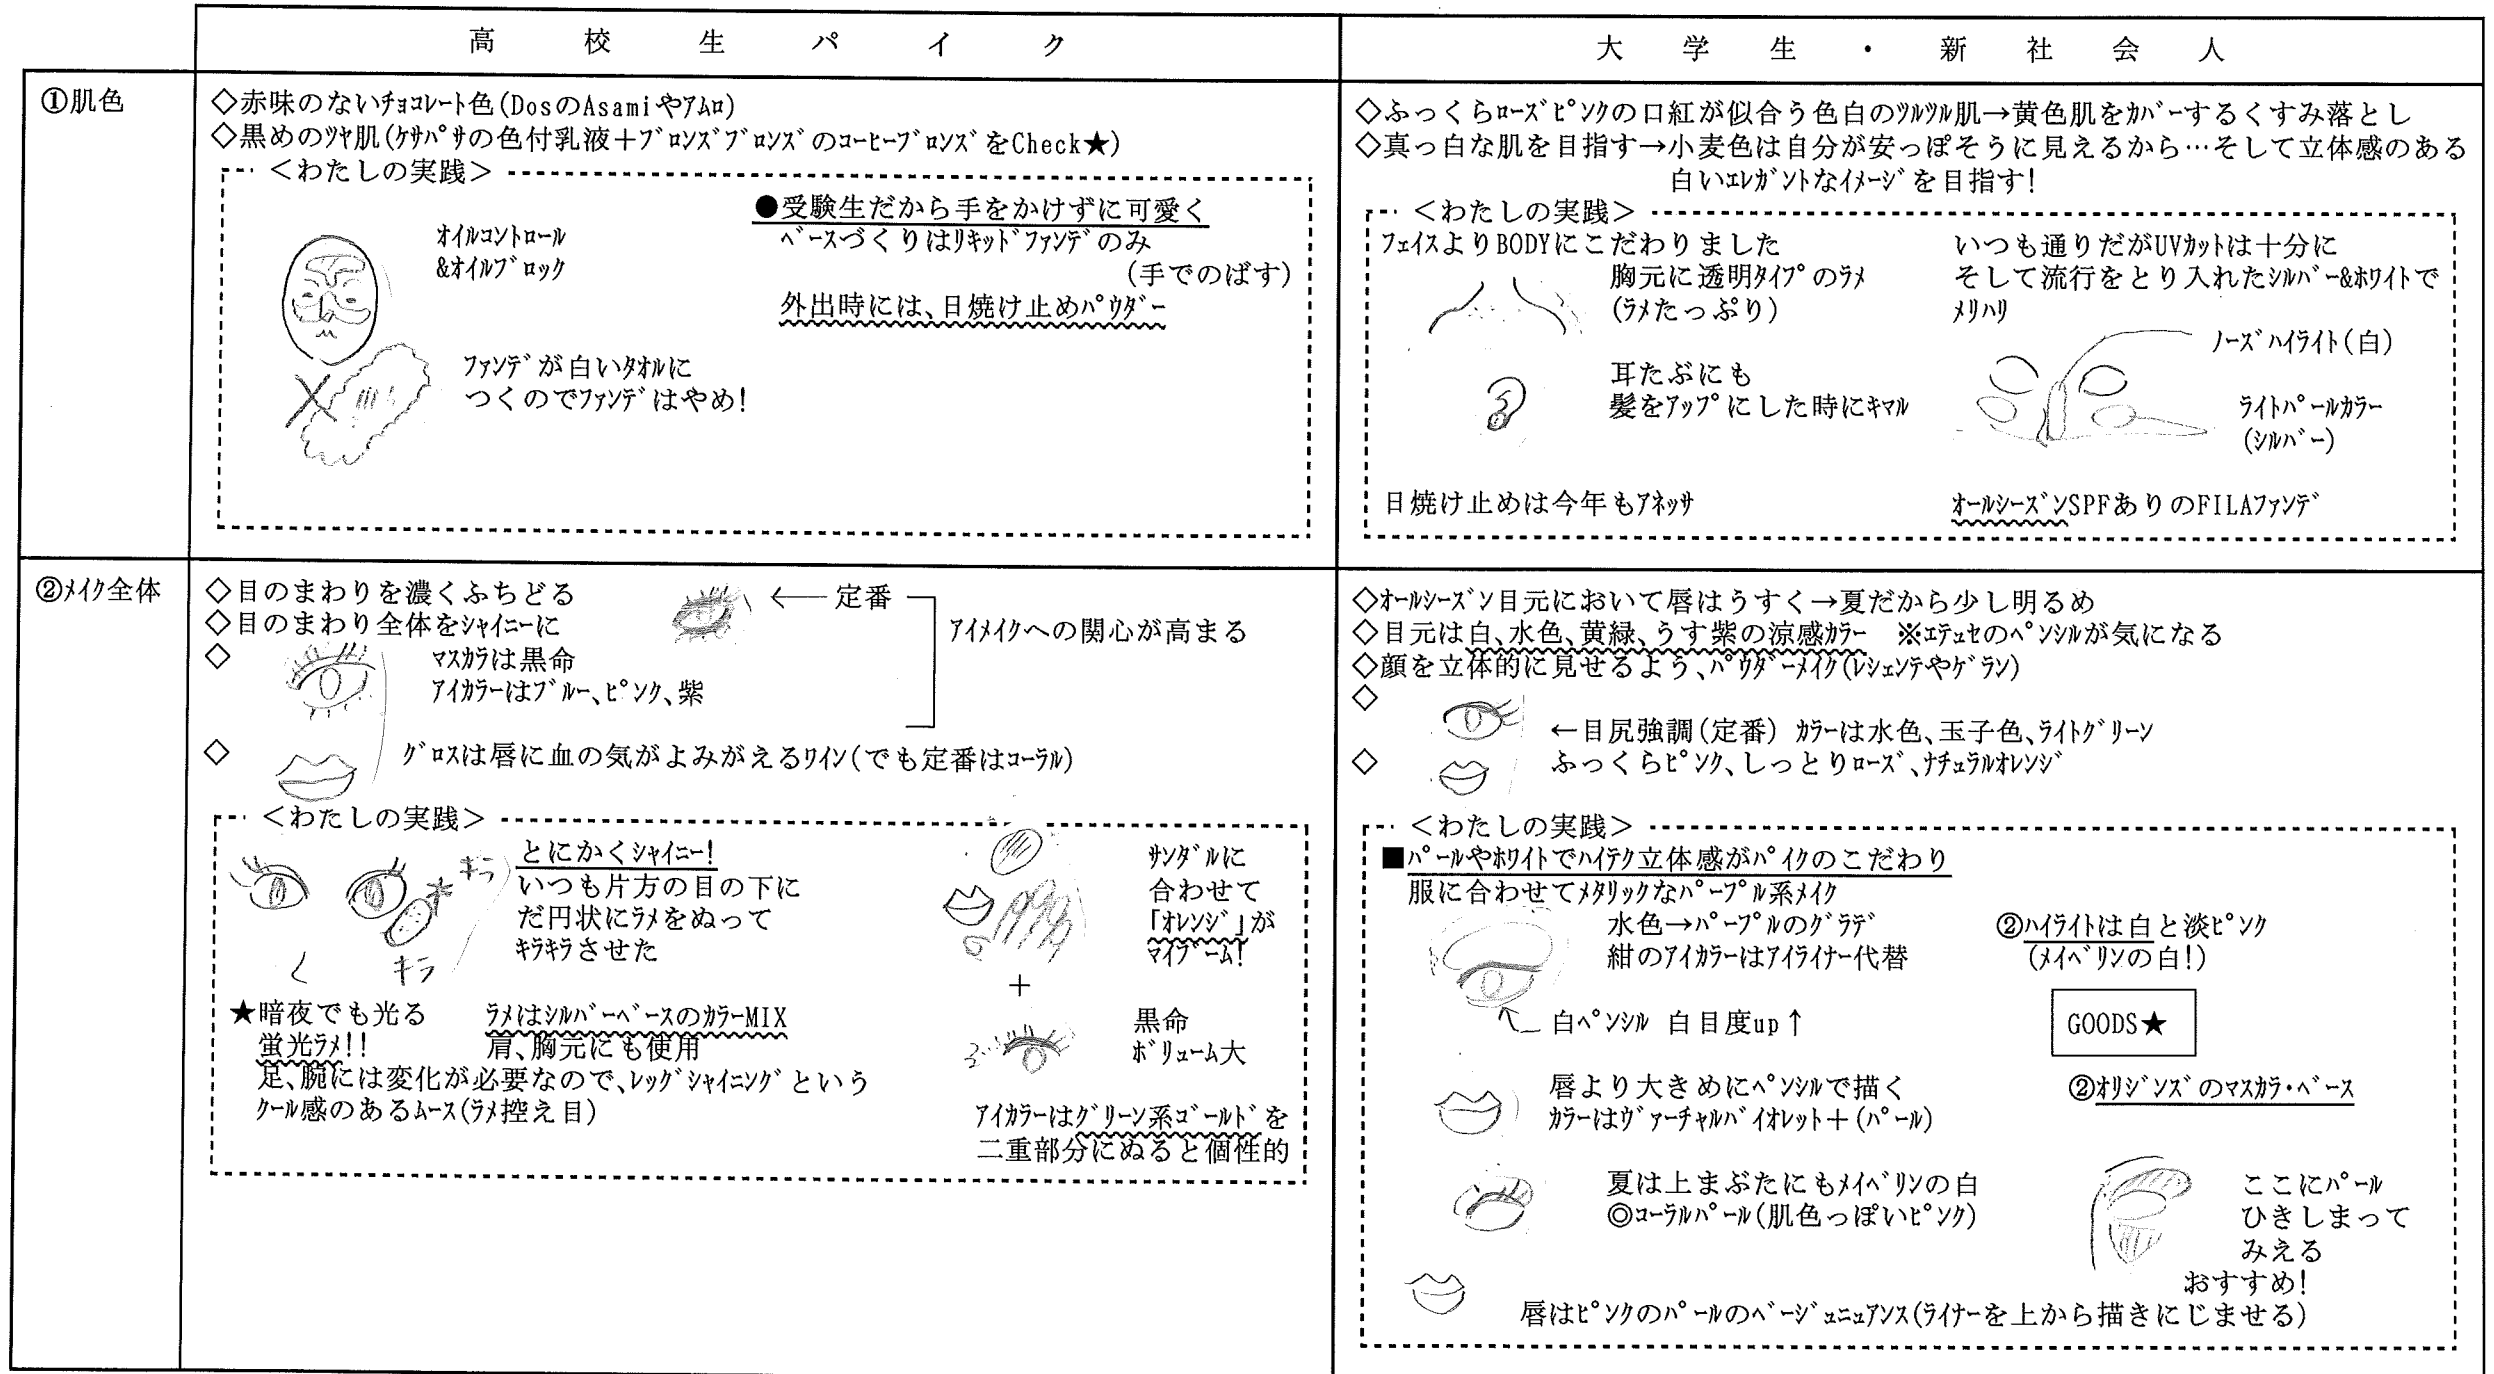 高校生パイク
大学生・新社会人
①肌色
◇赤味のないﾁｮｺﾚｰﾄ色(DosのAsamiやｱﾑﾛ)
◇黒めのﾂﾔ肌(ｹｻﾊﾟｻの色付乳液＋ﾌﾞﾛﾝｽﾞﾌﾞﾛﾝｽﾞのｺｰﾋｰﾌﾞﾛﾝｽﾞをCheck★)
＜わたしの実践＞
ｵｲﾙｺﾝﾄﾛｰﾙ
&ｵｲﾙﾌﾞﾛｯｸ
●受験生だから手をかけずに可愛く
ﾍﾞｰｽづくりはﾘｷｯﾄﾞﾌｧﾝﾃﾞのみ
(手でのばす)
外出時には、日焼け止めﾊﾟｳﾀﾞｰ
ﾌｧﾝﾃﾞが白いﾀｵﾙに
つくのでﾌｧﾝﾃﾞはやめ!
◇ふっくらﾛｰｽﾞﾋﾟﾝｸの口紅が似合う色白のﾂﾙﾂﾙ肌→黄色肌をｶﾊﾞｰするくすみ落とし
◇真っ白な肌を目指す→小麦色は自分が安っぽそうに見えるから…そして立体感のある
白いｴﾚｶﾞﾝﾄなｲﾒｰｼﾞを目指す!
＜わたしの実践＞
ﾌｪｲｽよりBODYにこだわりました
胸元に透明ﾀｲﾌﾟのﾗﾒ
(ﾗﾒたっぷり)
耳たぶにも
髪をｱｯﾌﾟにした時にｷﾏﾙ
日焼け止めは今年もｱﾈｯｻ
いつも通りだがUVｶｯﾄは十分に
そして流行をとり入れたｼﾙﾊﾞｰ&ﾎﾜｲﾄで
ﾒﾘﾊﾘ
ﾉｰｽﾞﾊｲﾗｲﾄ(白)
ﾗｲﾄﾊﾟｰﾙｶﾗｰ
(ｼﾙﾊﾞｰ)
ｵｰﾙｼｰｽﾞﾝSPFありのFILAﾌｧﾝﾃﾞ
②ﾒｲｸ全体
◇目のまわりを濃くふちどる
←── 定番
◇目のまわり全体をｼｬｲﾆｰに
ｱｲﾒｲｸへの関心が高まる
◇
ﾏｽｶﾗは黒命
ｱｲｶﾗｰはﾌﾞﾙｰ、ﾋﾟﾝｸ、紫
◇
ｸﾞﾛｽは唇に血の気がよみがえるﾜｲﾝ(でも定番はｺｰﾗﾙ)
＜わたしの実践＞
キラ
キラ
とにかくｼｬｲﾆｰ!
いつも片方の目の下に
だ円状にﾗﾒをぬって
ｷﾗｷﾗさせた
★暗夜でも光る
蛍光ﾗﾒ!!
ﾗﾒはｼﾙﾊﾞｰﾍﾞｰｽのｶﾗｰMIX
肩、胸元にも使用
足、腕には変化が必要なので、ﾚｯｸﾞｼｬｲﾆﾝｸﾞという
ｸｰﾙ感のあるﾑｰｽ(ﾗﾒ控え目)
ｻﾝﾀﾞﾙに
合わせて
「ｵﾚﾝｼﾞ」が
ﾏｲﾌﾞｰﾑ!
＋
黒命
ﾎﾞﾘｭｰﾑ大
ｱｲｶﾗｰはｸﾞﾘｰﾝ系ｺﾞｰﾙﾄﾞを
二重部分にぬると個性的
◇ｵｰﾙｼｰｽﾞﾝ目元において唇はうすく→夏だから少し明るめ
◇目元は白、水色、黄緑、うす紫の涼感ｶﾗｰ　※ｴﾃｭｾのﾍﾟﾝｼﾙが気になる
◇顔を立体的に見せるよう、ﾊﾟｳﾀﾞｰﾒｲｸ(ﾚｼｪﾝﾃやｹﾞﾗﾝ)
◇
←目尻強調(定番) ｶﾗｰは水色、玉子色、ﾗｲﾄｸﾞﾘｰﾝ
◇
ふっくらﾋﾟﾝｸ、しっとりﾛｰｽﾞ、ﾅﾁｭﾗﾙｵﾚﾝｼﾞ
＜わたしの実践＞
■ﾊﾟｰﾙやﾎﾜｲﾄでﾊｲﾃｸ立体感がﾊﾟｲｸのこだわり
服に合わせてﾒﾀﾘｯｸなﾊﾟｰﾌﾟﾙ系ﾒｲｸ
水色→ﾊﾟｰﾌﾟﾙのｸﾞﾗﾃﾞ
紺のｱｲｶﾗｰはｱｲﾗｲﾅｰ代替
白ﾍﾟﾝｼﾙ 白目度up↑
②ﾊｲﾗｲﾄは白と淡ﾋﾟﾝｸ
(ﾒｲﾍﾞﾘﾝの白!)
GOODS★
②ｵﾘｼﾞﾝｽﾞのﾏｽｶﾗ・ﾍﾞｰｽ
唇より大きめにﾍﾟﾝｼﾙで描く
ｶﾗｰはｳﾞｧｰﾁｬﾙﾊﾞｲｵﾚｯﾄ＋(ﾊﾟｰﾙ)
夏は上まぶたにもﾒｲﾍﾞﾘﾝの白
◎ｺｰﾗﾙﾊﾟｰﾙ(肌色っぽいﾋﾟﾝｸ)
ここにﾊﾟｰﾙ
ひきしまって
みえる
おすすめ!
唇はﾋﾟﾝｸのﾊﾟｰﾙのﾍﾞｰｼﾞｭﾆｭｱﾝｽ(ﾗｲﾅｰを上から描きにじませる)